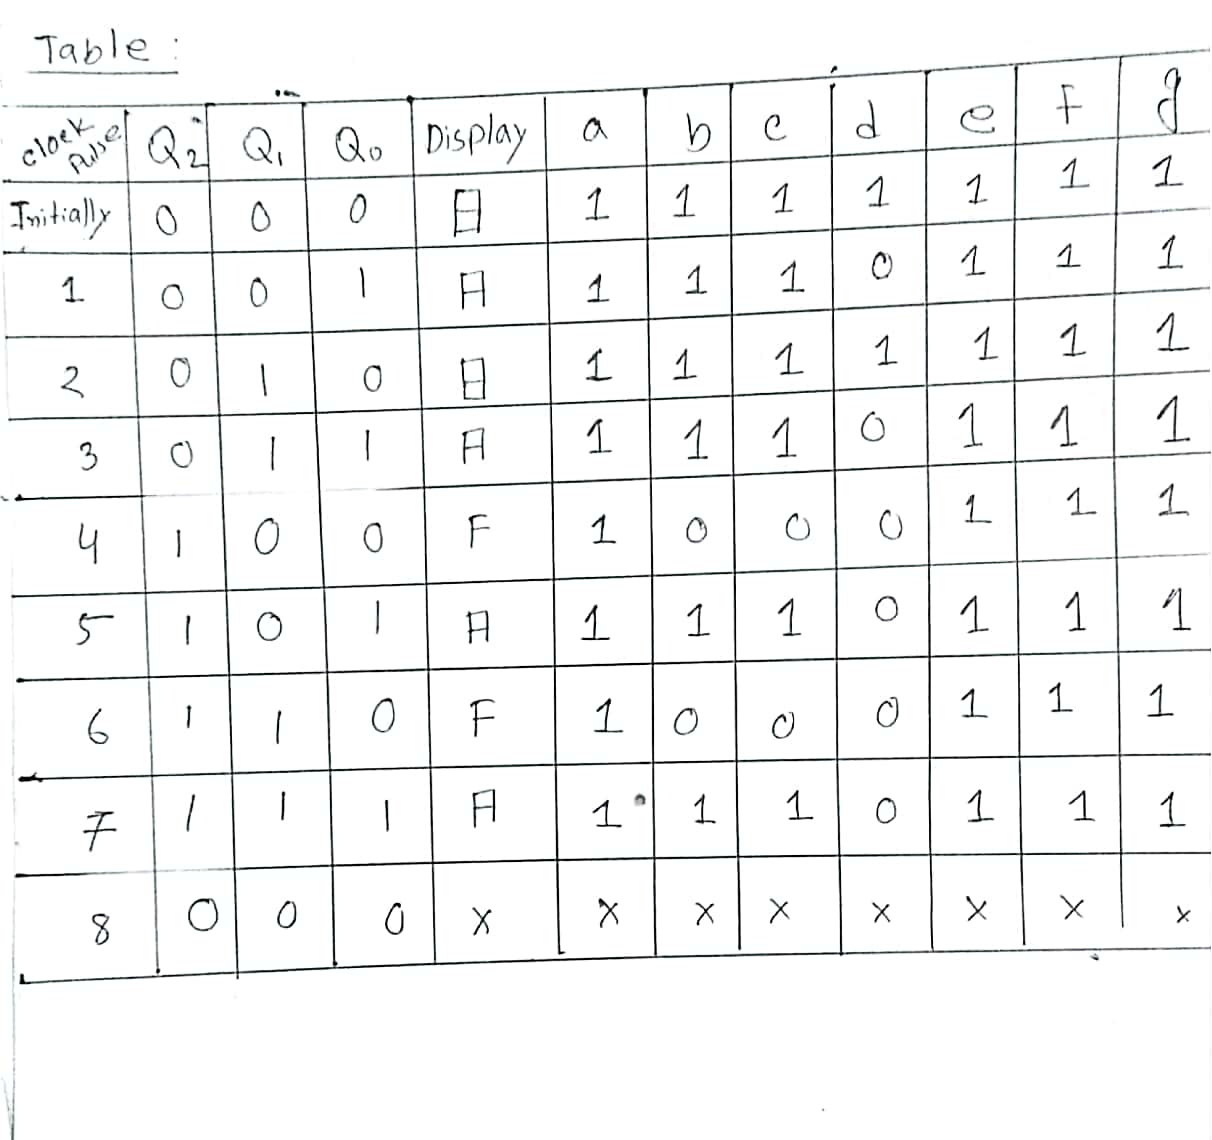 Table :
Clock Pulse Q2 Q1 Q0 Display a b c d e f g
Initially 0 0 0 B 1 1 1 1 1 1 1
1 0 0 1 A 1 1 1 0 1 1 1
2 0 1 0 B 1 1 1 1 1 1 1
3 0 1 1 A 1 1 1 0 1 1 1
4 1 0 0 F 1 0 0 0 1 1 1
5 1 0 1 A 1 1 1 0 1 1 1
6 1 1 0 F 1 0 0 0 1 1 1
7 1 1 1 A 1 1 1 0 1 1 1
8 0 0 0 x x x x x x x x